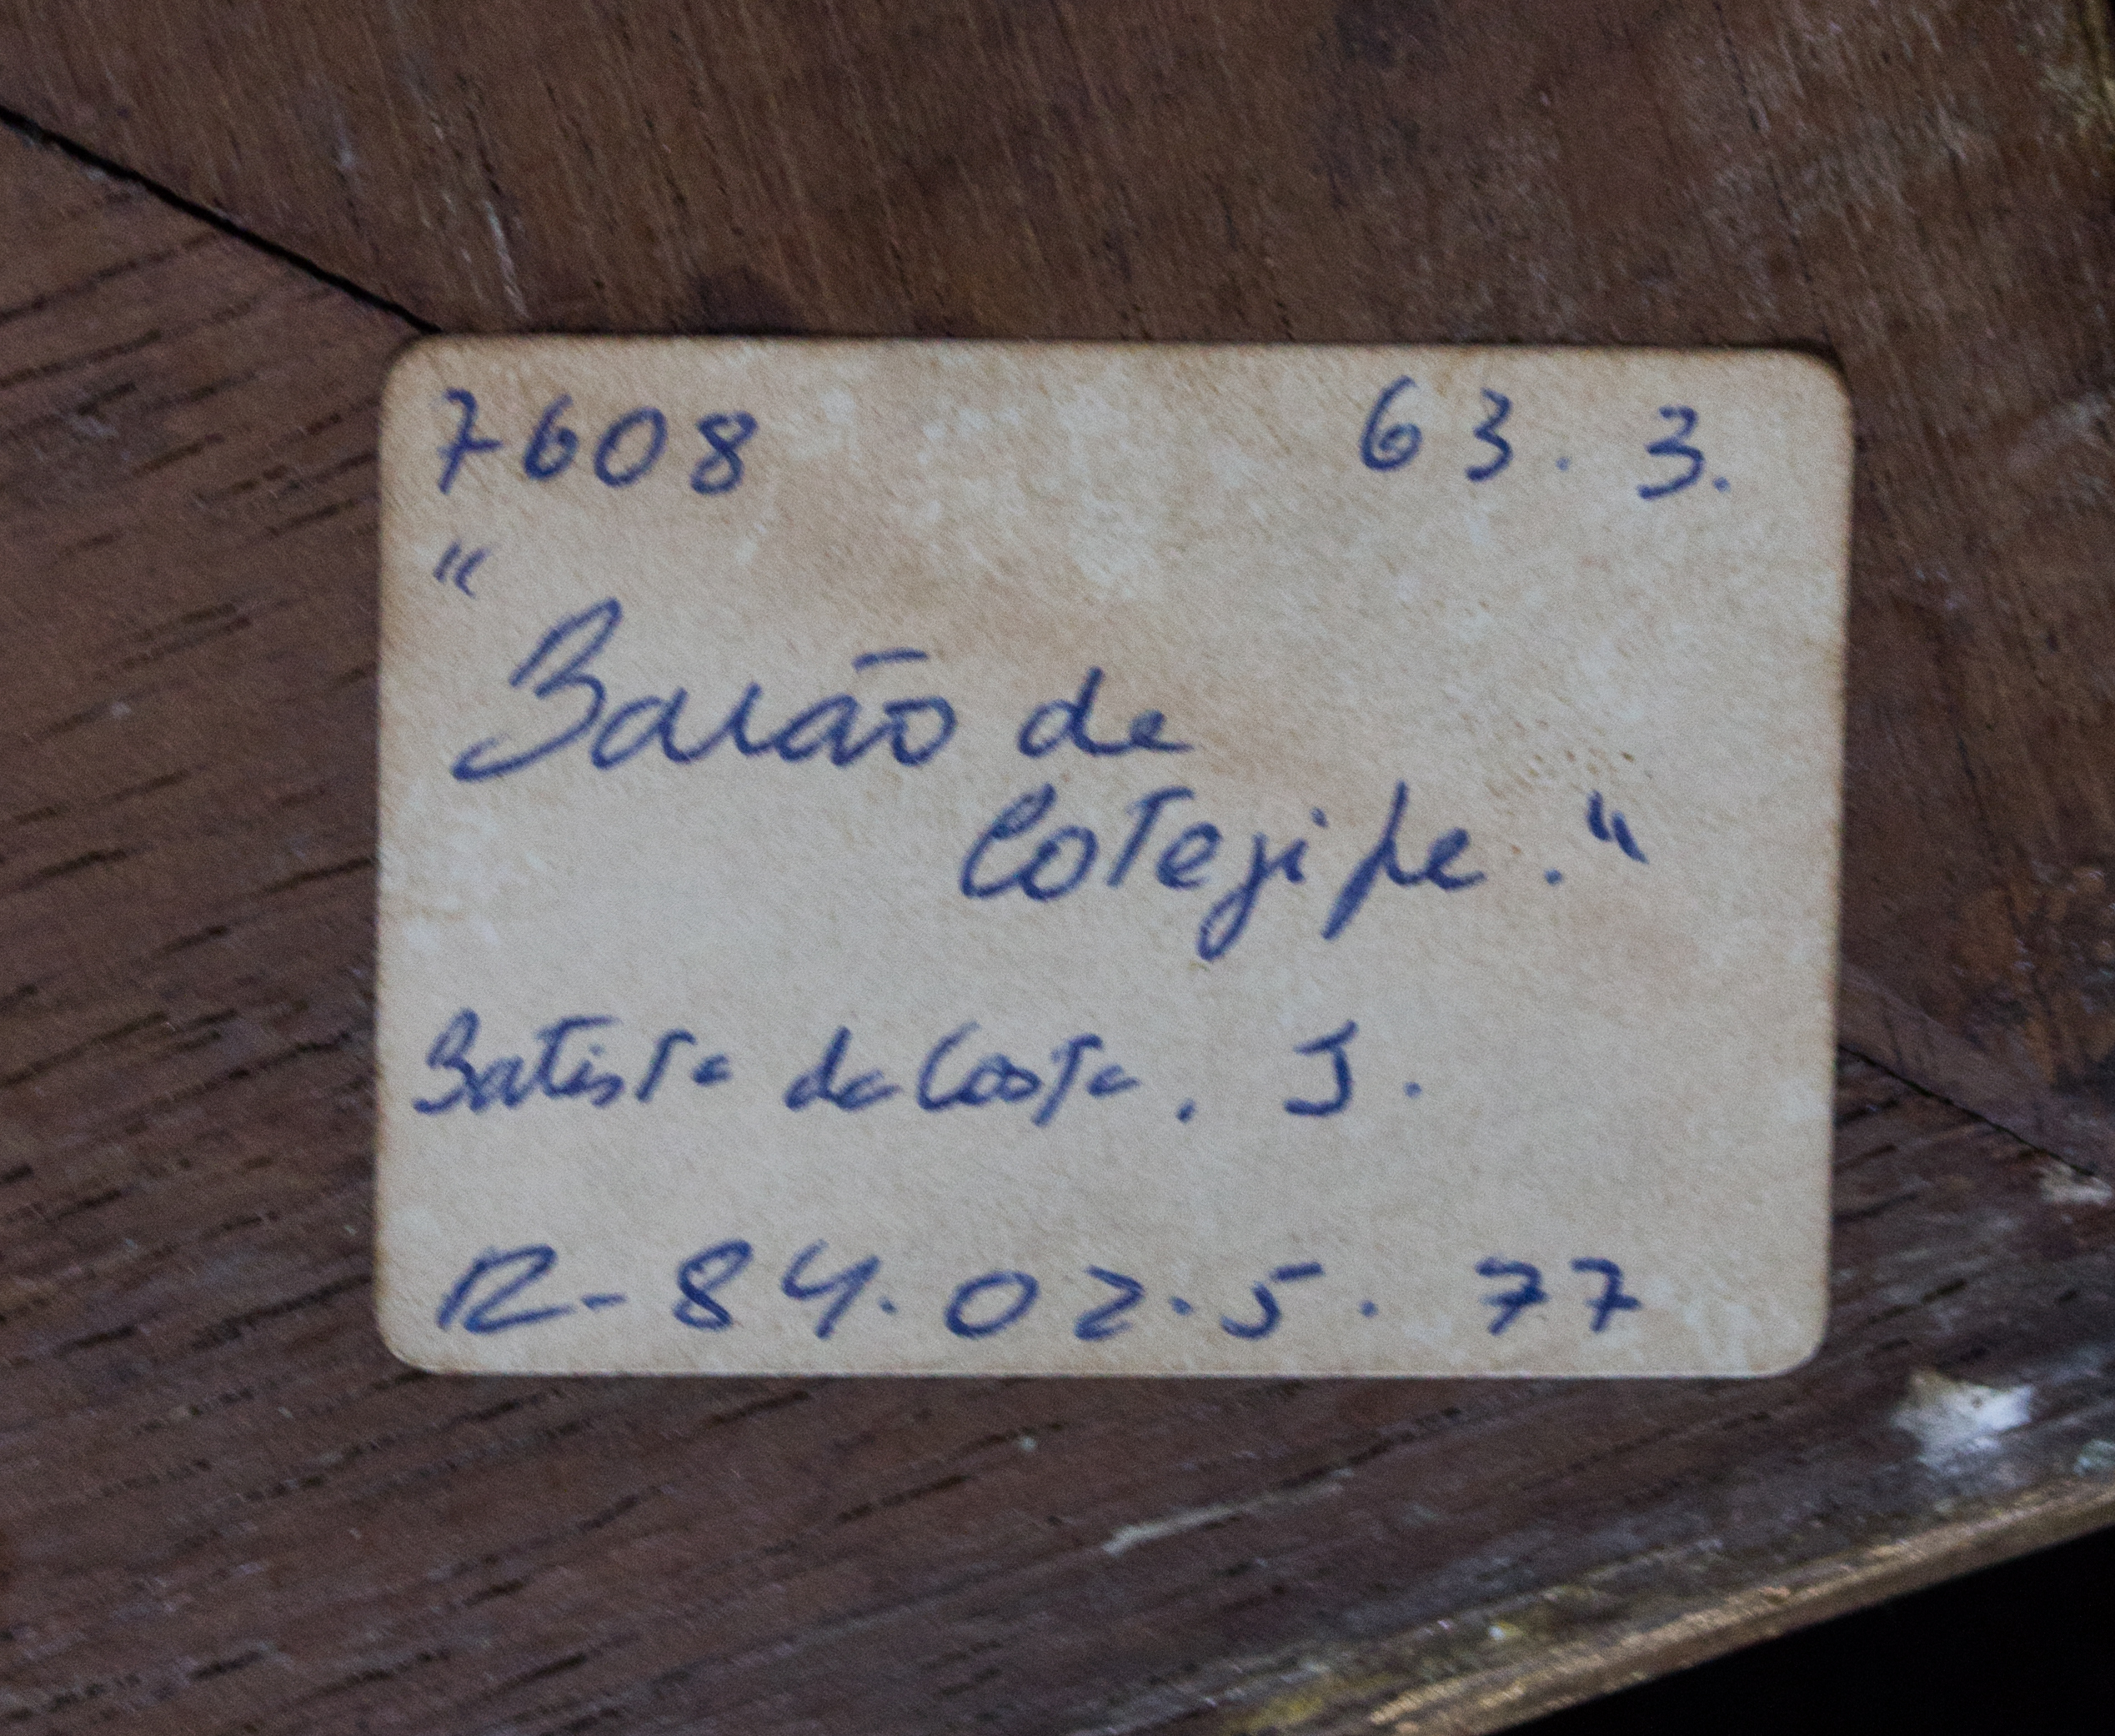 7608 63. 3.
"Barão de
Cotegipe."
Batista da Costa, J.
R-84.02.5.77